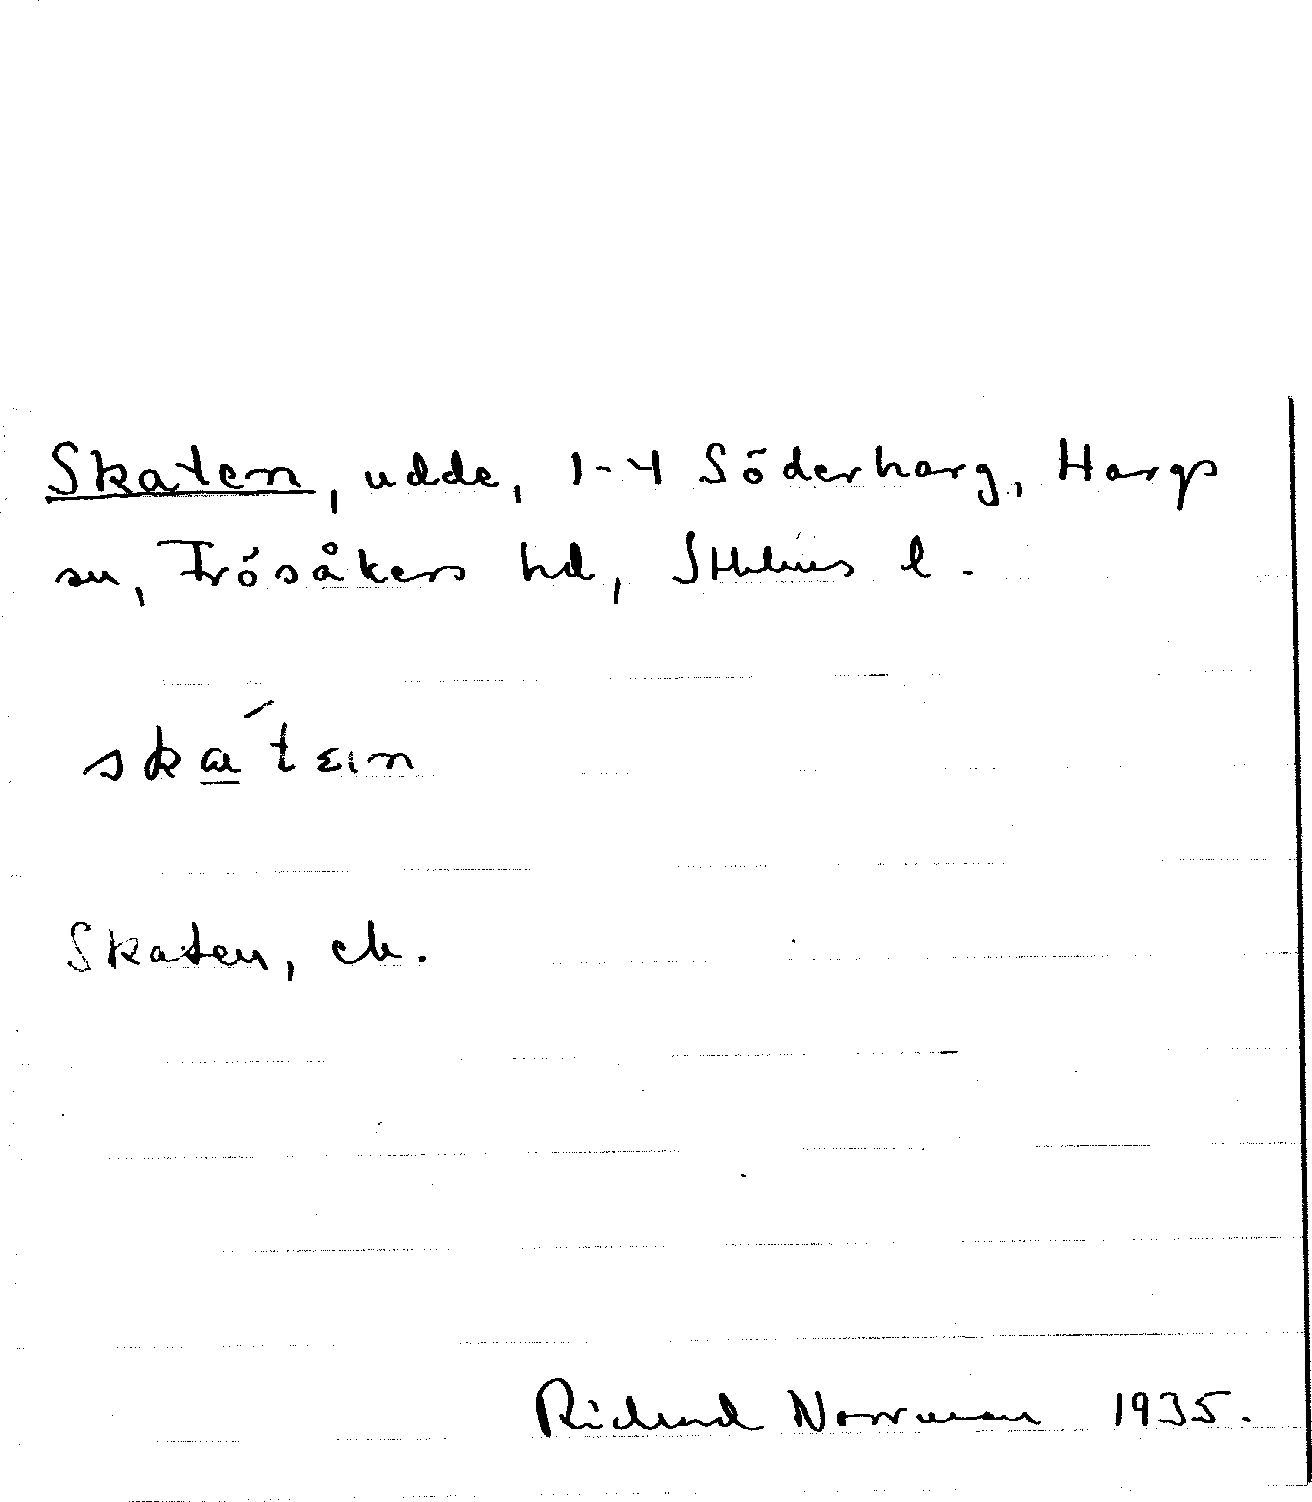 Skaten, udde, 1-4 Söderharg, Hargs
sn, Frösåkers hd, Sthlms l.
skátεın
Skaten, ek.
Richard Norrman 1935.